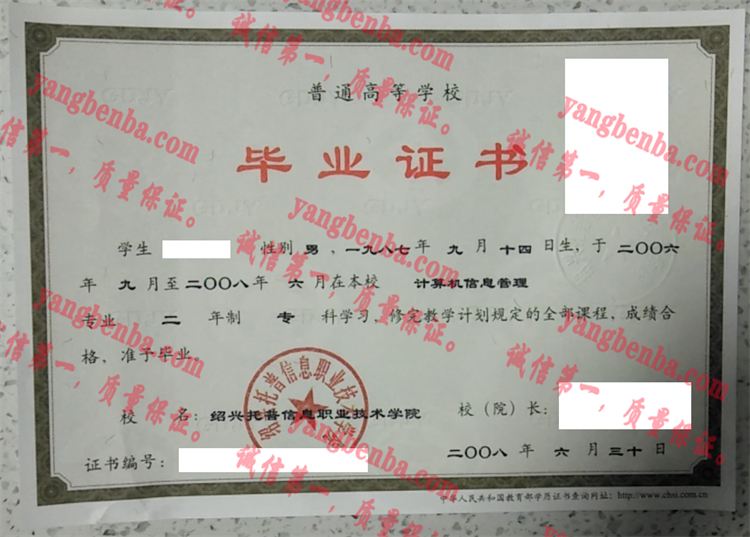 普通高等学校
毕业证书
学生 性别 男 ，一九八七年 九 月 十四 日生，于 二〇〇六
年 九 月至 二〇〇八 年 六 月在本校 计算机信息管理
专业 二 年制 专 科学习，修完教学计划规定的全部课程，成绩合
格，准予毕业。
绍兴托普信息职业技术学院
校 名：绍兴托普信息职业技术学院 校（院）长：
证书编号： 二〇〇八 年 六 月 三十 日
中华人民共和国教育部学历证书查询网址：http://www.chsi.com.cn
诚信第一，质量保证。
yangbenba.com
诚信第一，质量保证。
yangbenba.com
诚信第一，质量保证。
yangbenba.com
诚信第一，质量保证。
yangbenba.com
诚信第一，质量保证。
yangbenba.com
诚信第一，质量保证。
yangbenba.com
诚信第一，质量保证。